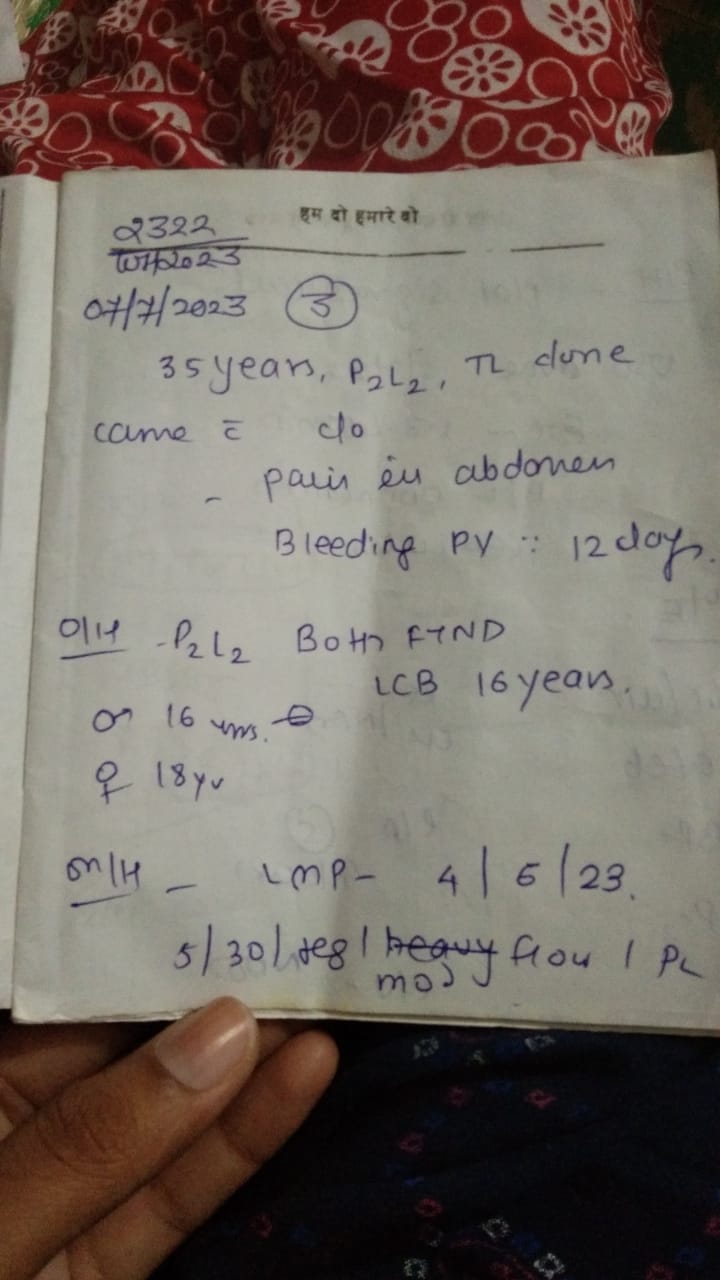 हम दो हमारे दो
2322
07/7/2023 3
35 years, P2L2, TL done
came c̄ c/o
- pain in abdomen
Bleeding PV :: 12 days.
O/H - P2L2 Both FTND
LCB 16 years.
♂ 16 yrs.
♀ 18 yr
M/H - LMP - 4/6/23.
5/30/reg/ heavy flow / PL
mod